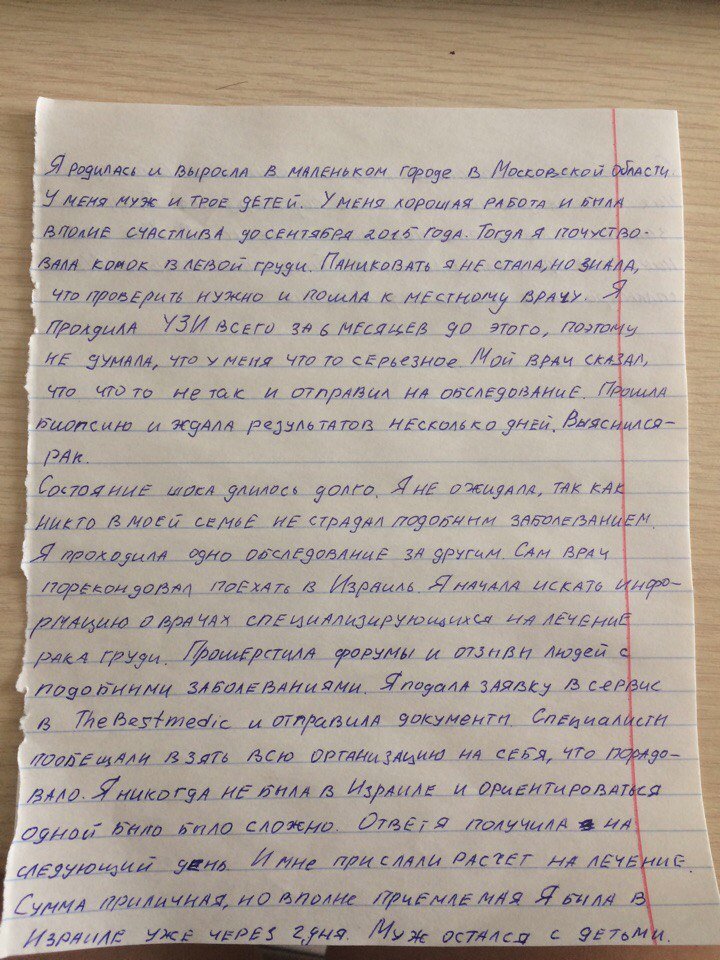 Я родилась и выросла в маленьком городе в Московской области.
У меня муж и трое детей. У меня хорошая работа и была
вполне счастлива до сентября 2015 года. Тогда я почуство-
вала комок в левой груди. Паниковать я не стала, но знала,
что проверить нужно и пошла к местному врачу. Я
проходила УЗИ всего за 6 месяцев до этого, поэтому
не думала, что у меня что то серьезное. Мой врач сказал,
что что то не так и отправил на обследование. Прошла
биопсию и ждала результатов несколько дней. Выяснился-
рак.
Состояние шока длилось долго. Я не ожидала, так как
никто в моей семье не страдал подобным заболеванием.
Я проходила одно обследование за другим. Сам врач
порекондовал поехать в Израиль. Я начала искать инфо-
рмацию о врачах специализирующихся на лечение
рака груди. Прошерстила форумы и отзывы людей с
подобными заболеваниями. Я подала заявку в сервис
в TheBestmedic и отправила документы. Специалисты
пообещали взять всю организацию на себя, что порадо-
вало. Я никогда не была в Израиле и ориентироваться
одной было было сложно. Ответ я получила на
следующий день. И мне прислали расчет на лечение.
Сумма приличная, но вполне приемлемая Я была в
Израиле уже через 2 дня. Муж остался с детьми.